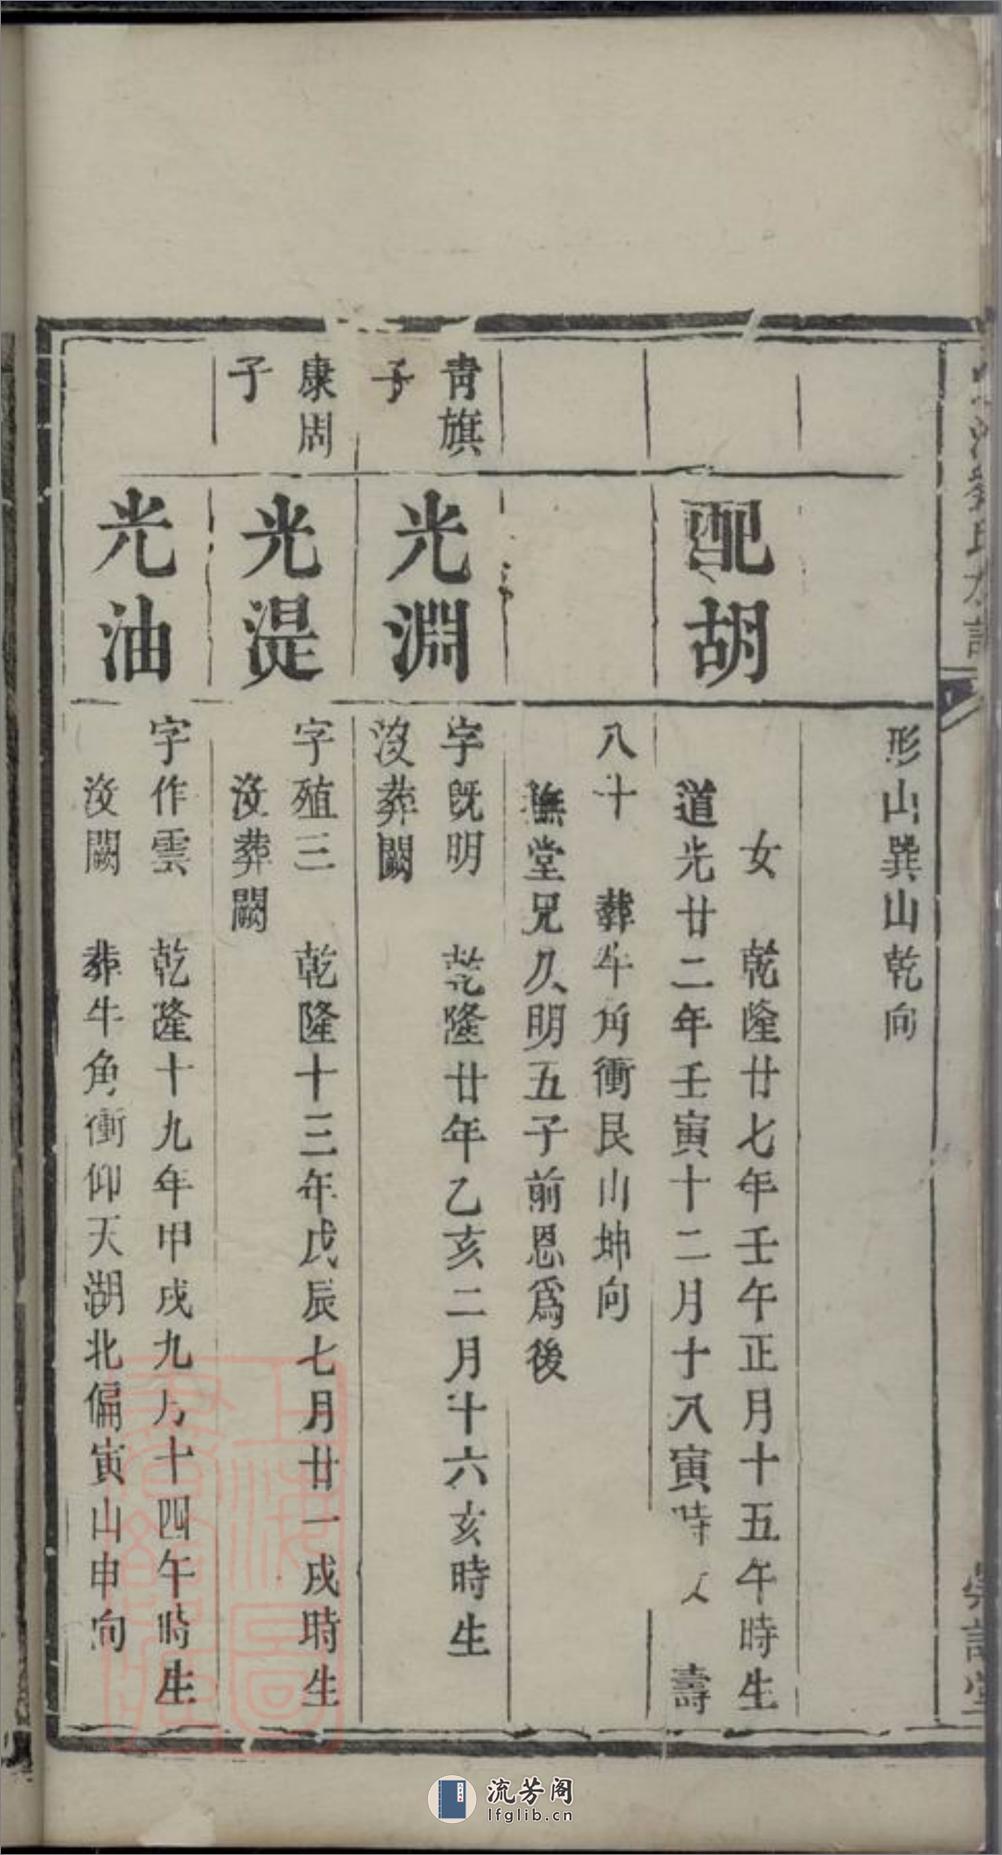 形山巽山乾向
配胡
女　乾隆廿七年壬午正月十五午時生
道光廿二年壬寅十二月十八寅時　壽
八十　葬牛角衝艮山坤向
撫堂兄久明五子前恩爲後
青旗
子
光淵
字旣明　乾隆廿年乙亥二月十六亥時生
沒葬闕
康周
子
光湜
字殖三　乾隆十三年戊辰七月廿一戌時生
沒葬闕
光油
字作雲　乾隆十九年甲戌九月十四午時生
沒闕　葬牛角衝仰天湖北偏寅山申向
上海圖書館藏
流芳阁
lfglib.cn